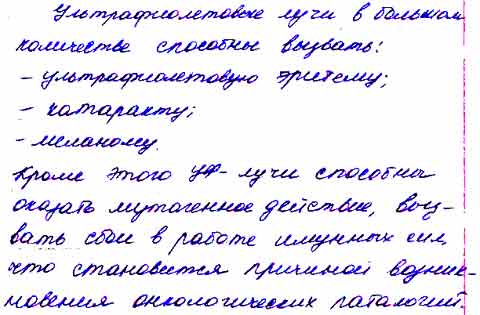 Ультрафиолетовые лучи в большом
количестве способны вызвать:
- ультрафиолетовую эритему;
- катаракту;
- меланому.
Кроме этого УФ-лучи способны
оказать мутагенное действие, выз-
вать сбои в работе имунных сил,
что становится причиной возник-
новения онкологических паталогий.